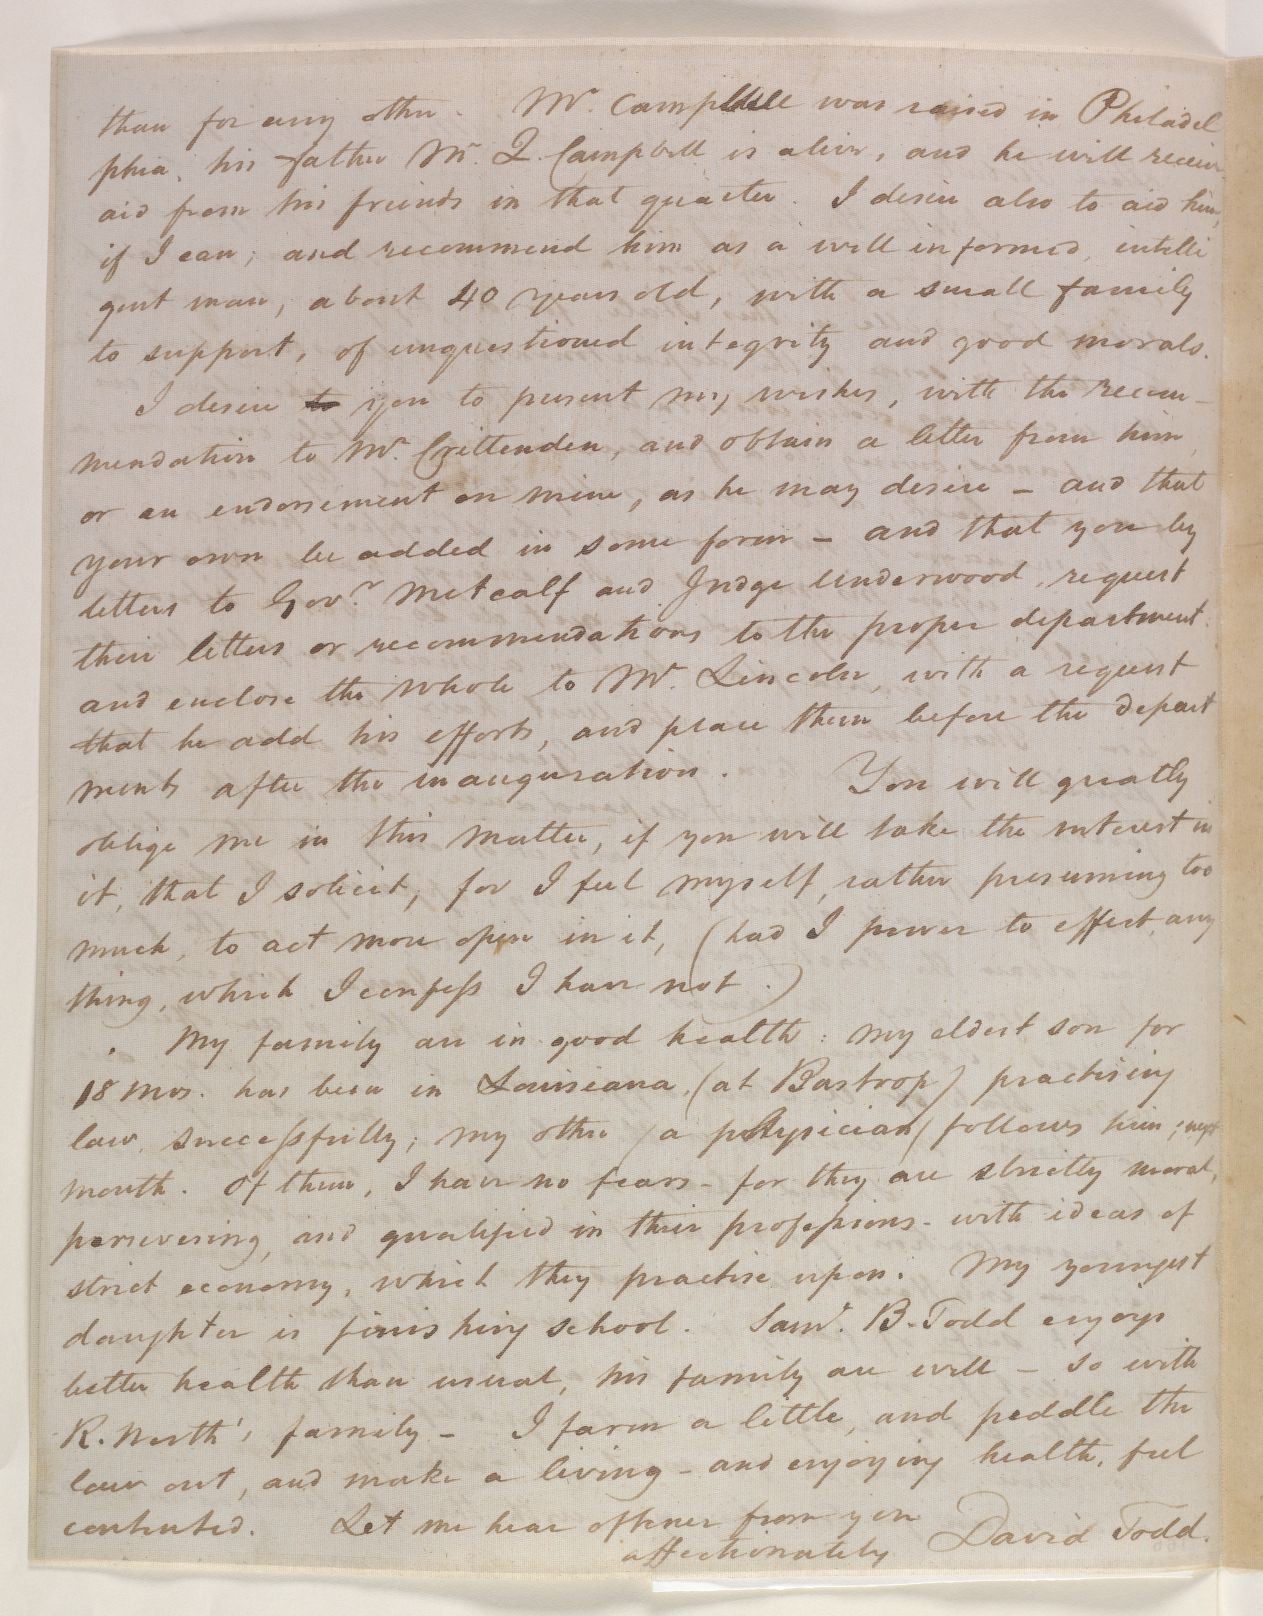 than for any other. Mr. Campbell was raised in Philadel
phia, his father Mr. Q. Campbell is alive, and he will receive
aid from his friends in that quarter. I desire also to aid him,
if I can; and recommend him as a well informed, intelli
gent man, about 40 years old, with a small family
to support, of unquestioned integrity and good morals.
I desire to you to present my wishes, with the recom-
mendation to Mr. Crittenden, and obtain a letter from him
or an endorsement on mine, as he may desire - and that
your own be added in some form - and that you by
letters to Govr. Metcalf and Judge Underwood, request
their letters or recommendations to the proper department.
and enclose the whole to Mr. Lincoln, with a request
that he add his efforts, and place them before the depart
ments after the inauguration. You will greatly
oblige me in this matter, if you will take the interest in
it, that I solicit, for I feel myself, rather presuming too
much, to act more open in it, (had I power to effect any
thing, which I confess I have not.)
My family are in good health: my eldest son for
18 mos. has been in Louisiana, (at Bastrop) practising
law, successfully; my other (a physician) follows him; next
month. Of them, I have no fears - for they are strictly moral,
persevering, and qualified in their professions - with ideas of
strict economy, which they practise upon. My youngest
daughter is finishing school. Saml. B. Todd enjoys
better health than usual, his family are well - so with
R. North's family - I farm a little, and peddle the
law out, and make a living - and enjoying health, feel
contented. Let me hear oftener from you
affectionately David Todd.